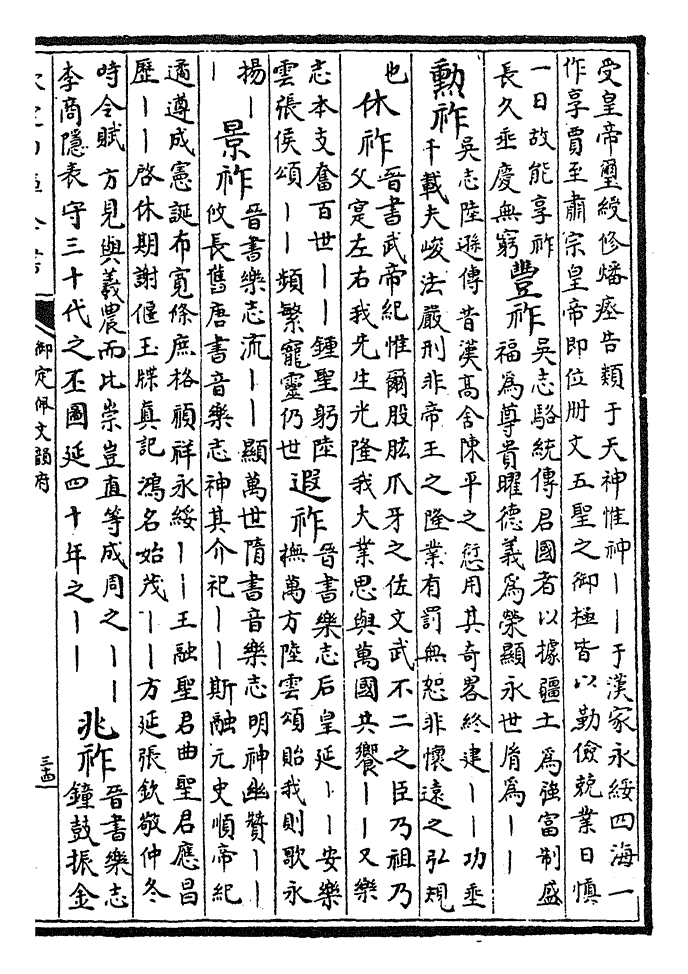 受皇帝璽綬修燔瘞告類于天神惟神丨丨于漢家永綏四海一
作享賈至肅宗皇帝即位册文五聖之御極皆以勤儉兢業日慎
一日故能享祚
長久垂慶無窮
豐祚
吳志駱統傳君國者以據疆土為強富制盛
福為尊貴曜德義為榮顯永世胤為丨丨
勲祚
吳志陸遜傳昔漢高舍陳平之愆用其奇畧終建丨丨功垂
千載夫峻法嚴刑非帝王之隆業有罰無恕非懷遠之弘規
也
休祚
晉書武帝紀惟爾股肱爪牙之佐文武不二之臣乃祖乃
父寔左右我先生光隆我大業思與萬國共饗丨丨又樂
志本支奮百世丨丨鍾聖躬陸
雲張侯頌丨丨頻繁寵靈仍世
遐祚
晉書樂志后皇延丨丨安樂
撫萬方陸雲頌貽我則歌永
揚丨
丨
景祚
晉書樂志流丨丨顯萬世隋書音樂志明神幽贊丨丨
攸長舊唐書音樂志神其介祀丨丨斯融元史順帝紀
遹遵成憲誕布寛條庶格頑祥永綏丨丨王融聖君曲聖君應昌
歷丨丨啓休期謝偃玉牒真記鴻名始茂丨丨方延張欽敬仲冬
時令賦方見與羲農而比崇豈直等成周之丨丨
李商隱表守三十代之丕圖延四十年之丨丨
兆祚
晉書樂志
鐘鼓振金
御定佩文韻府
三十四